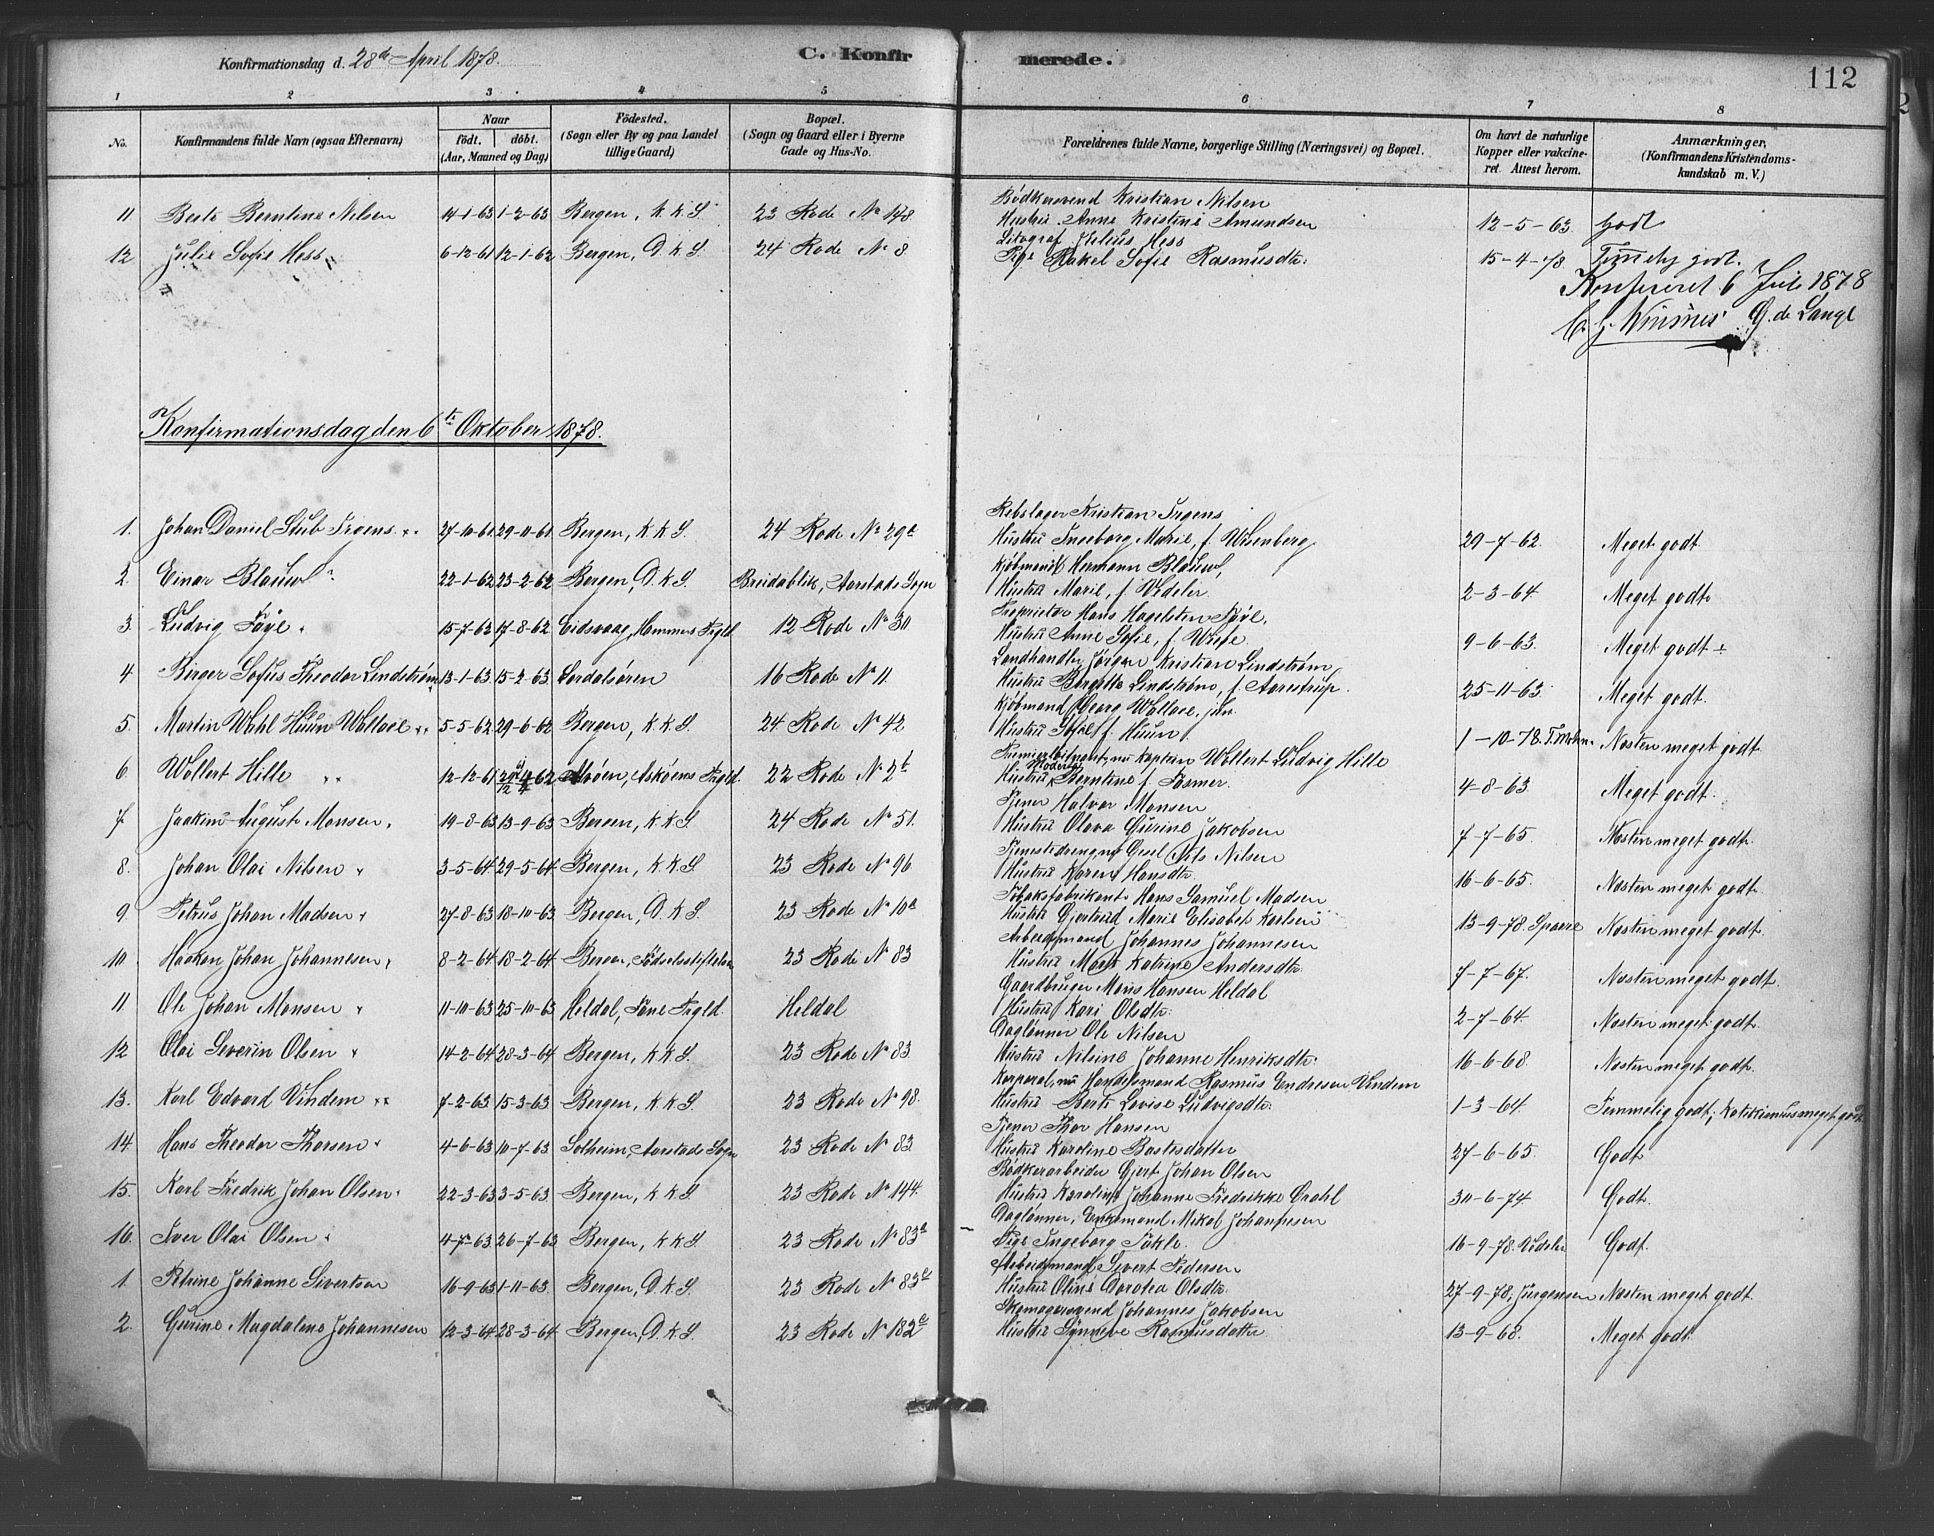 Konfirmationsdag d. 28de April 1878.
C. Konfirmerede.
112
1 2 3 4 5 6 7 8
No.
Konfirmandens fulde Navn (ogsaa Efternavn)
Naar
födt. döbt.
(Aar, Maaned og Dag)
Födested.
(Sogn eller By og paa Landet
tillige Gaard)
Bopæl.
(Sogn og Gaard eller i Byerne
Gade og Hus-No.
Forældrenes fulde Navne, borgerlige Stilling (Næringsvei) og Bopæl.
Om havt de naturlige
Kopper eller vakcine-
ret. Attest herom.
Anmærkninger,
(Konfirmandens Kristendoms-
kundskab m. V.)
Bødkersvend Kristian Nilsen
11 Berte Berntine Nilsen 14-1-63 1-2-63 Bergen, K.K.S. 23 Rode No 178 Hustru Anne Kristine Amundsen 12-5-63 Godt
Litograf Julius Hess
12 Julie Sofie Hess 6-12-61 12-1-62 Bergen, D.K.S. 24 Rode No 8 Pige Rakel Sofie Rasmusdtr. 15-4-78 Temmelig godt.
Konfereret 6 Juli 1878
Winsnes G. de Lange
Konfirmationsdag den 6te Oktober 1878.
Rebslager Kristian Irgens
1. Johan Daniel Stub Irgens 27-10-61 29-11-61 Bergen, K.K.S. 24 Rode No 29a Hustru Ingeborg Marie, f. Wesenberg 29-7-62. Meget godt
Kjøbmand Hermann Blauw,
2. Einar Blauw 22-1-62 23-2-62 Bergen, D.K.S. Breidablik, Aarstads Sogn Hustru Marie, f. Wedeler. 2-3-64 Meget godt
Proprietær Hans Hagelsten Føye,
3. Ludvig Føye 15-7-62 17-8-62 Eidsvaag, Hammers Prgld. 12 Rode No 30 Hustru Anne Sofie, f. Wiese 9-6-63. Meget godt
Landhandler Jørgen Kristian Lindstrøm
4 Birger Sofus Theodor Lindstrøm 13-1-63 15-2-63 Lærdalsören 16 Rode No 11. Hustru Birgitte Lindstrøm, f. Aarestrup. 25-11-63 Meget godt.
Kjøbmand Georg Wallace, jun.
5. Martin Wahl Huun Wallace 5-5-62 29-6-62 Bergen, K.K.S. 24 Rode No 42 Hustru Sofie f. Huun 1-10-78. Næsten meget godt
Premierløitnant, nu Kaptein Wollert Ludvig Hille
6. Wollert Hille 12-12-61 Alvøen, Askøens Prgld. 22 Rode No 2b Hustru Berntine f. Fasmer. 4-8-63 Meget godt.
Tjener Halvor Monsen
7. Joakim August Monsen 19-8-63 13-9-63 Bergen, K.K.S. 24 Rode No 51. Hustru Olava Gurine Jakobsen 7-7-65 Næsten meget godt
Tjenestedreng, nu Gesel Nils Nilsen
8. Johan Olai Nilsen 3-5-64 29-5-64 Bergen, K.K.S. 23 Rode No 96 Hustru Karen Hansdtr. 16-6-65. Næsten meget godt
Tobaksfabrikant Hans Samuel Madsen
9 Petrus Johan Madsen 27-8-63 18-10-63 Bergen, D.K.S. 23 Rode No 10a Hustru Gjertrud Marie Elisabet Karlsen 13-9-78. Næsten meget godt.
Arbeidsmand Johannes Johannesen
10 Haakon Johan Johannesen 8-2-64 18-2-64 Bergen, Födselsstiftelsen 23 Rode No 83 Hustru Marit Katrine Andersdtr. 7-7-67. Næsten meget godt.
Gaardbruger Mons Hansen Heldal
11 Ole Johan Monsen 11-10-63 25-10-63 Heldal, Fane Prgld. Heldal Hustru Kari Olsdtr. 2-7-64. Næsten meget godt.
Daglønner Ole Nilsen
12 Olai Severin Olsen 14-2-64 28-3-64 Bergen, K.K.S. 23 Rode No 83. Hustru Nilsine Johanne Henriksdtr. 16-6-68. Næsten meget godt.
Korporal, nu Handelsmand Rasmus Endresen Vindem
13. Karl Edvard Vindem 7-2-63 15-3-63 Bergen, K.K.S. 23 Rode No 98. Hustru Berte Lovise Ludvigsdtr. 1-3-64. Temmelig godt; Katekismus meget godt
Tjener Thor Hansen
14. Hans Theodor Thorsen 4-6-63 10-7-63 Solheim, Aarstads Sogn 23 Rode No 83 Hustru Karoline Bastesdatter 27-6-65. Godt
Bødkerarbeider Gjert Johan Olsen
15. Karl Fredrik Johan Olsen 22-3-63 3-5-63 Bergen, K.K.S. 23 Rode No 144. Hustru Karoline Johanne Fredrikke Grahl 30-6-74 Godt.
Daglønner, Enkemand Mikal Johannesen
16. Iver Olai Olsen 4-7-63 26-7-63 Bergen, K.K.S. 23 Rode No 83a Pige Ingeborg Takle. 16-9-78. Wedeler Godt.
Arbeidsmand Sivert Pedersen
1. Petrine Johanne Sivertsen 16-9-63 1-11-63. Bergen, D.K.S. 23 Rode No 83a Hustru Oline Dorotea Olsdtr. 27-9-78, Jürgensen Næsten meget godt.
Skomagersvend Johannes Jakobsen
2. Gurine Magdalene Johannesen 12-3-64 28-3-64 Bergen, D.K.S. 23 Rode No 182a Hustru Synneve Rasmusdatter 13-9-68. Meget godt.